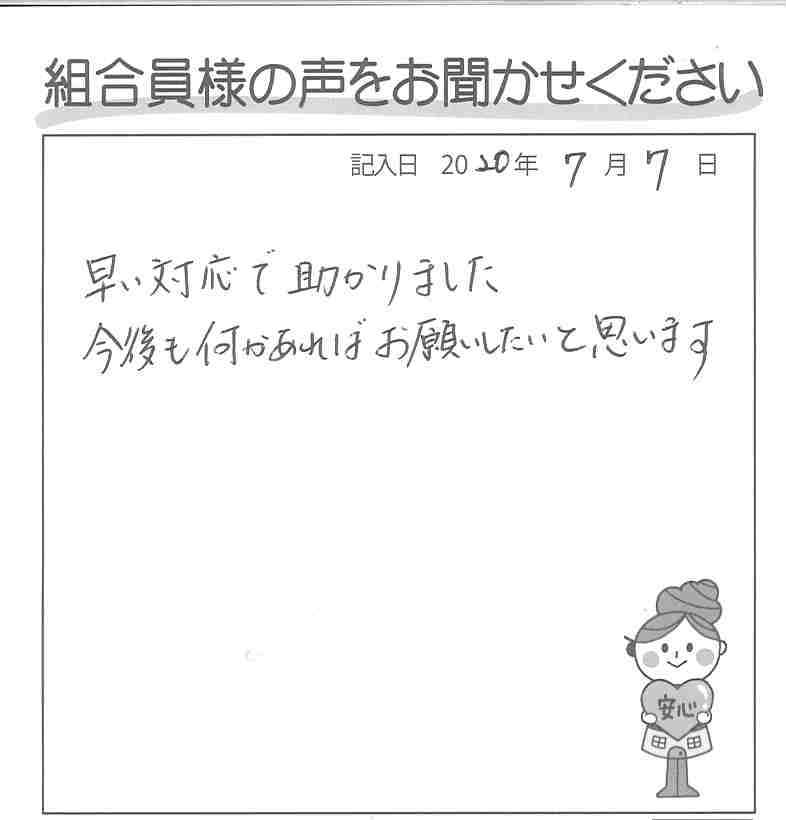 組合員様の声をお聞かせください
記入日 2020年 7月 7日
早い対応で助かりました
今後も何かあればお願いしたいと思います
安心